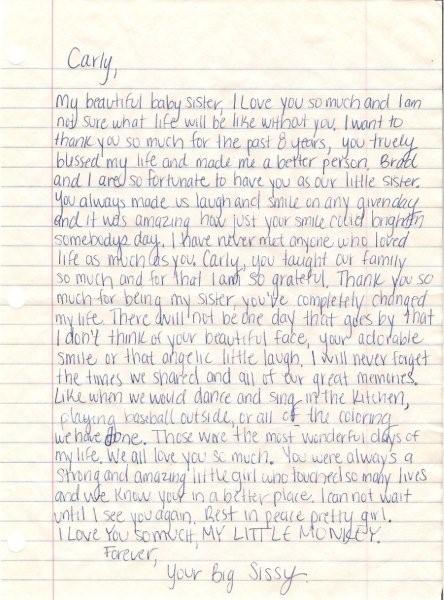 Carly,
My beautiful baby sister, I Love you so much and I am
not sure what life will be like without you. I want to
thank you so much for the past 8 years, you truely
blissed my life and made me a better person. Brad
and I are so fortunate to have you as our little sister.
You always made us laugh and smile on any given day
and it was amazing how just your smile could brighten
somebodys day. I have never met anyone who loved
life as much as you. Carly, you taught our family
so much and for that I am so grateful. Thank you so
much for being my sister, you've completely changed
my life. There will not be one day that goes by that
I don't think of your beautiful face, your adorable
smile or that angelic little laugh. I will never forget
the times we shared and all of our great memories.
Like when we would dance and sing in the kitchen,
playing baseball outside, or all of the coloring
we have done. Those were the most wonderful days of
my life. We all love you so much. You were always a
strong and amazing little girl who touched so many lives
and we know your in a better place. I can not wait
until I see you again. Rest in peace pretty girl.
I Love You so much, MY LITTLE MONKEY.
Forever,
Your Big Sissy